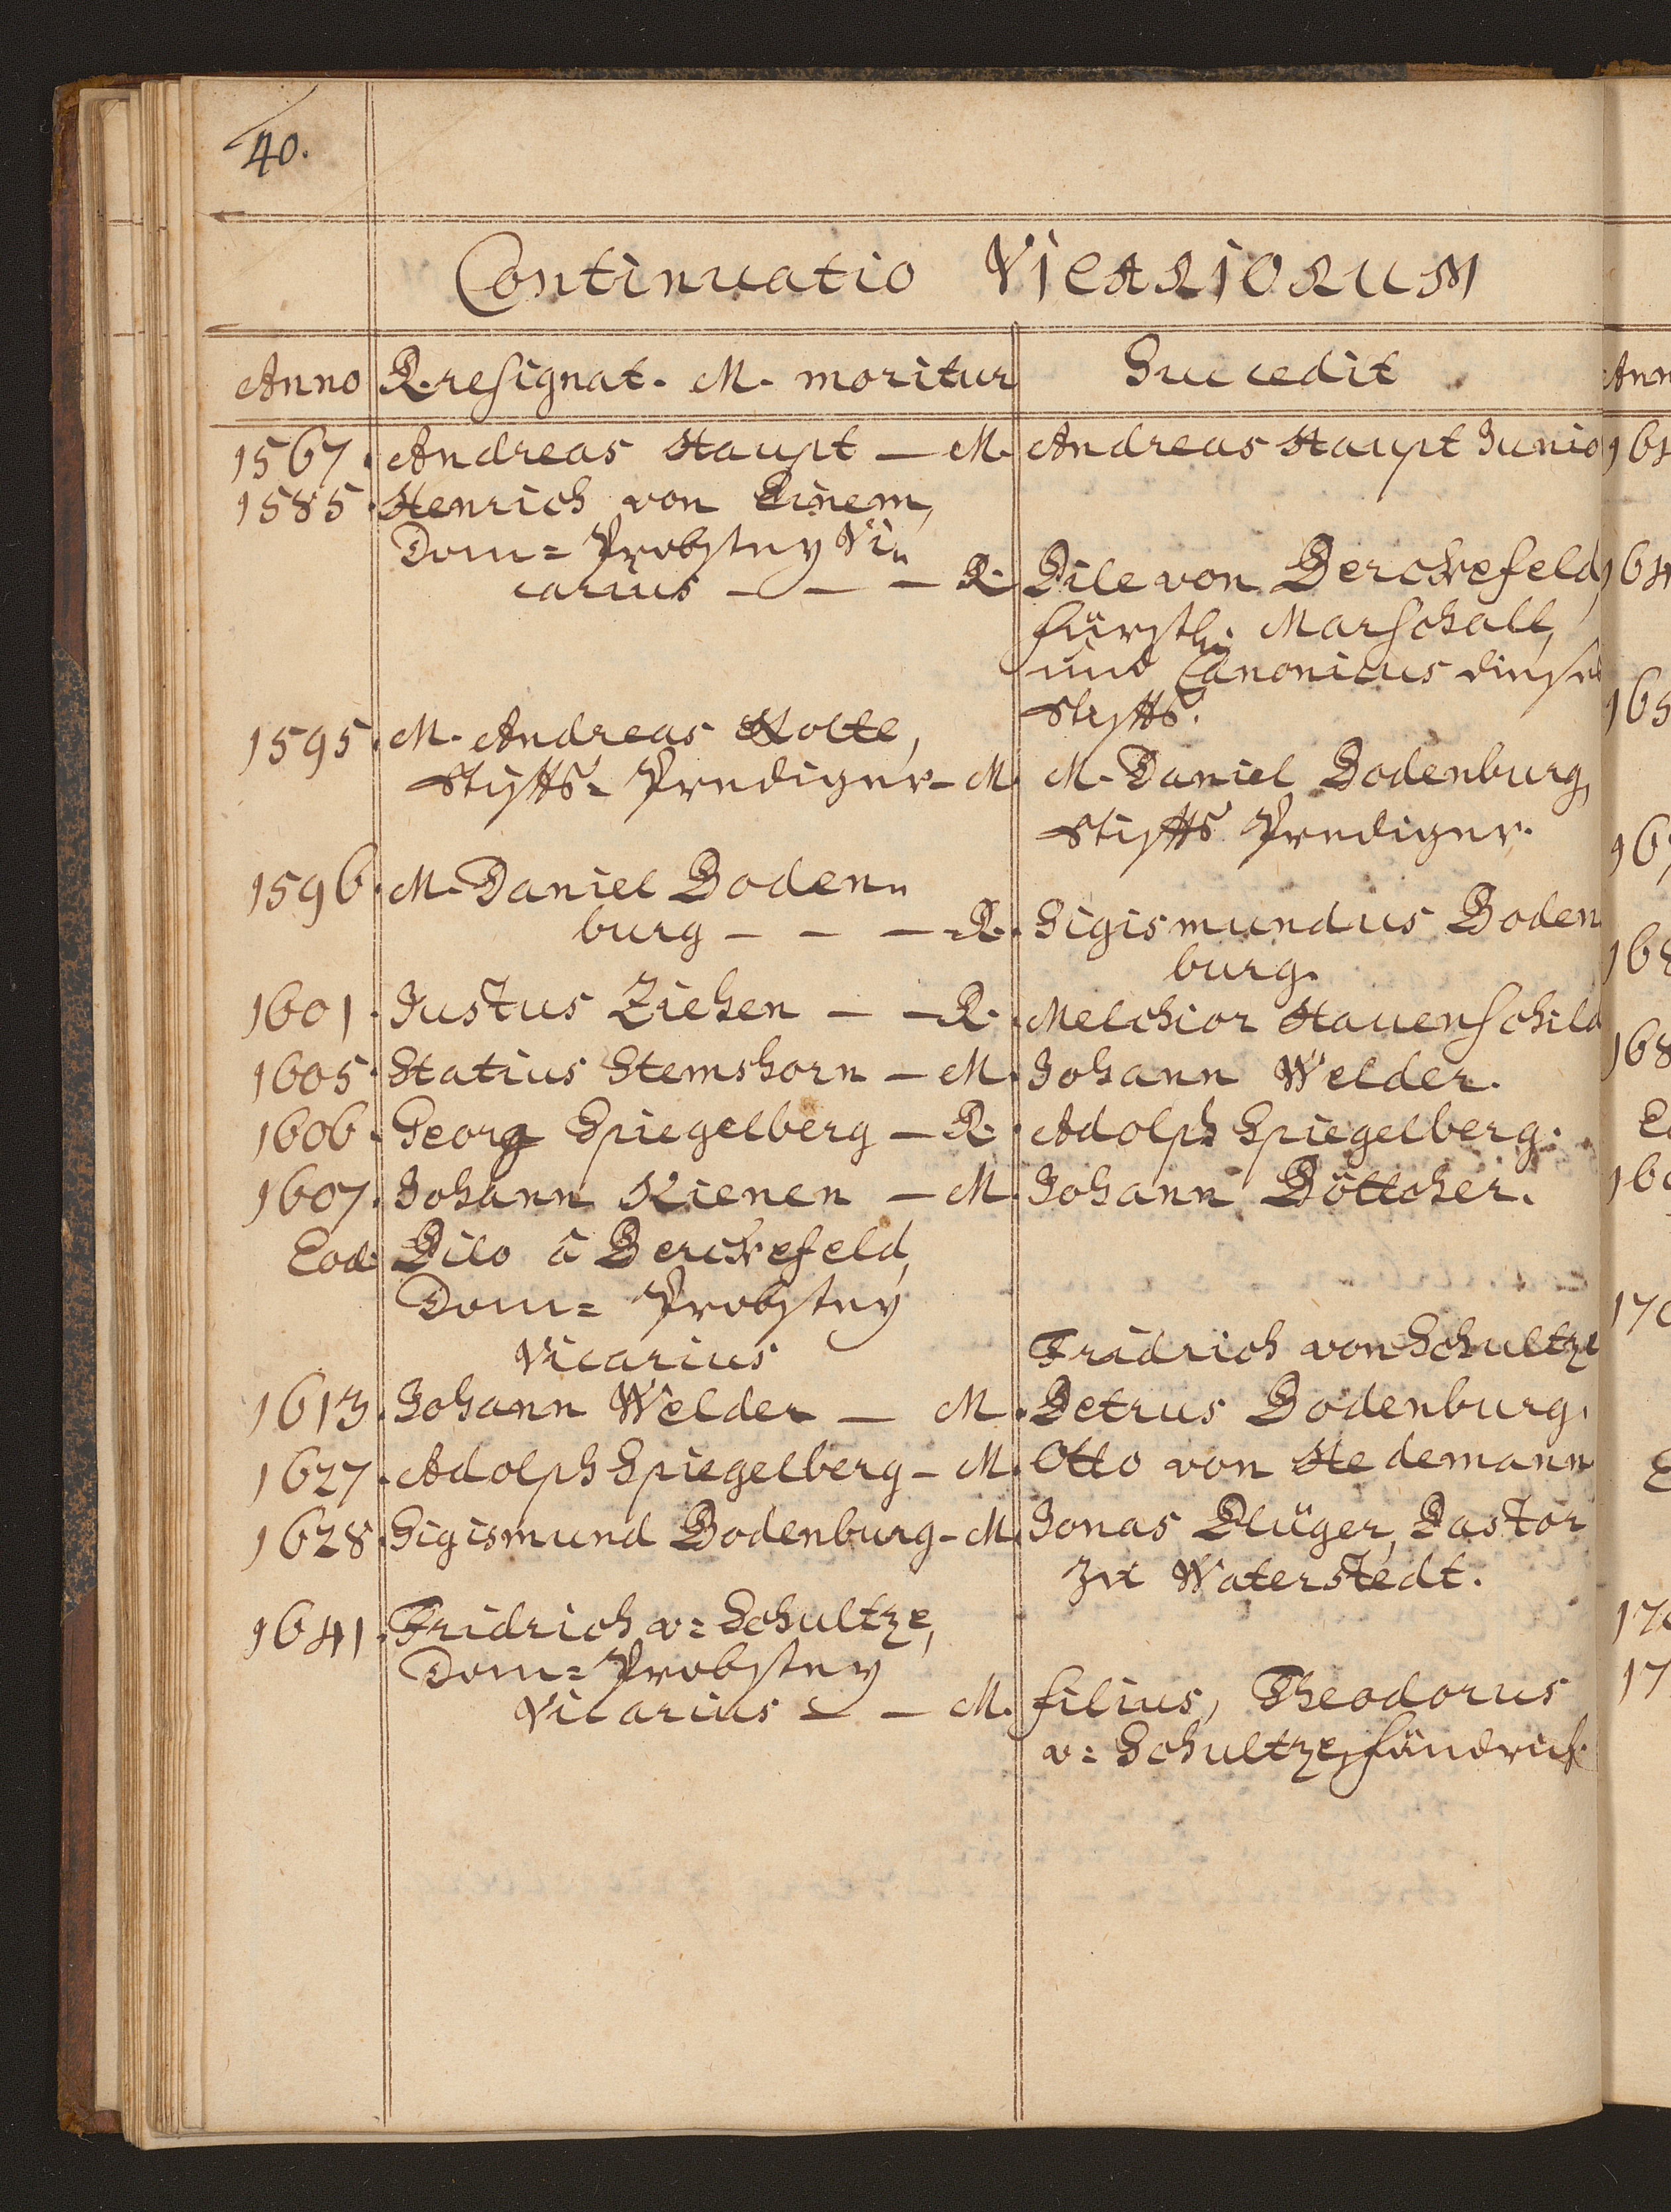 40.
Continuatio VICARIORUM
Anno R. resignat. M. moritur Succedit
1567. Andreas Haupt — M. Andreas Haupt Junio
1585. Henrich von Einem,
Dom= Probstey Vi=
carius — — — R. Dile von Berckefeld,
fürstl. Marschall,
und Canonicus dieses
Stiffts.
1595. M. Andreas Nolte,
Stiffts= Prediger — M. M. Daniel Bodenburg,
Stiffts Prediger.
1596. M. Daniel Boden=
burg — — — R. Sigismundus Boden
burg.
1601. Justus Ziehen — — R. Melchior Hauenschild
1605. Statius Stemshorn — M. Johann Welder.
1606. Georg Spiegelberg — R. Adolph Spiegelberg.
1607. Johann Rienen — M. Johann Böttcher.
Eod. Dilo â Berckefeld,
Dom= Probstey
Vicarius Fridrich von Schultze
1613. Johann Welder — M. Petrus Bodenburg.
1627. Adolph Spiegelberg — M. Otto von Hedemann
1628. Sigismund Bodenburg — M. Jonas Plüger, Pastor
zu Waterstedt.
1641. Fridrich v: Schultze,
Dom= Probstey
Vicarius — — M. filius, Theodorus
v: Schultze, fändrich.